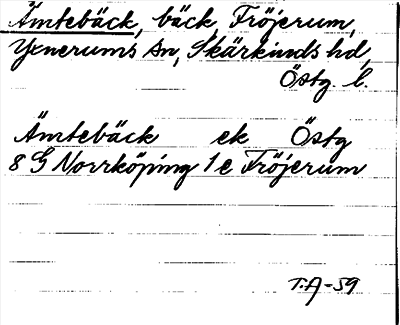 Ämtebäck, bäck, Fröjerum,
Yxnerums sn, Skärkinds hd,
Östg. l.
Ämtebäck ek Östg
8 G Norrköping 1 e Fröjerum
T.A-59